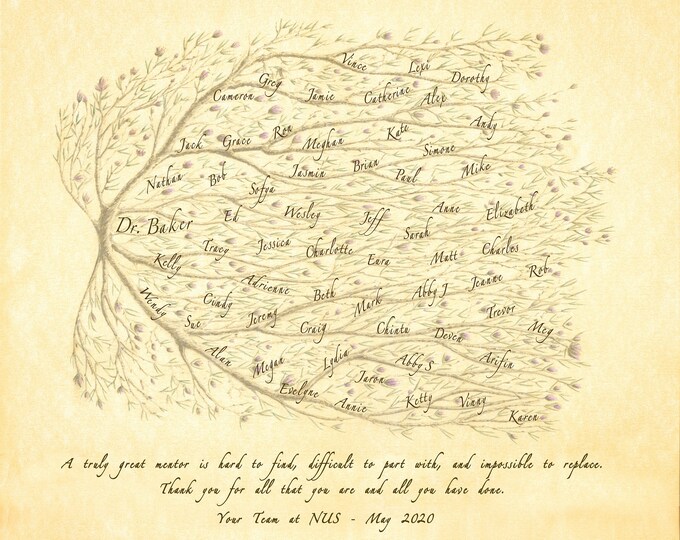 Vince Lexi Dorothy
Greg
Cameron Jamie Catherine Alex
Jack Grace Ron Meghan Kate Andy
Simone
Nathan Bob Sofya Jasmin Brian Paul Mike
Dr. Baker Ed Wesley Jeff Anne Elizabeth
Sarah
Kelly Tracy Jessica Charlotte Eura Matt Charles
Adrienne Beth Abby J Jeanne Rob
Wendy Cindy Mark Trevor
Sue Jeremy Craig Chintu Deven Meg
Alan Megan Lydia Abby S Arifin
Jaron
Evelyne Annie Ketty Vinny
Karen
A truly great mentor is hard to find, difficult to part with, and impossible to replace.
Thank you for all that you are and all you have done.
Your Team at NUS - May 2020